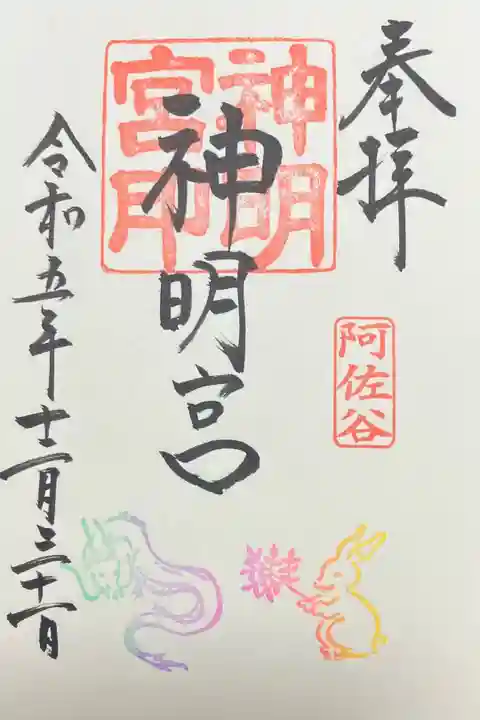 奉拝
阿佐谷
神明宮印
神明宮
令和五年十二月三十一日